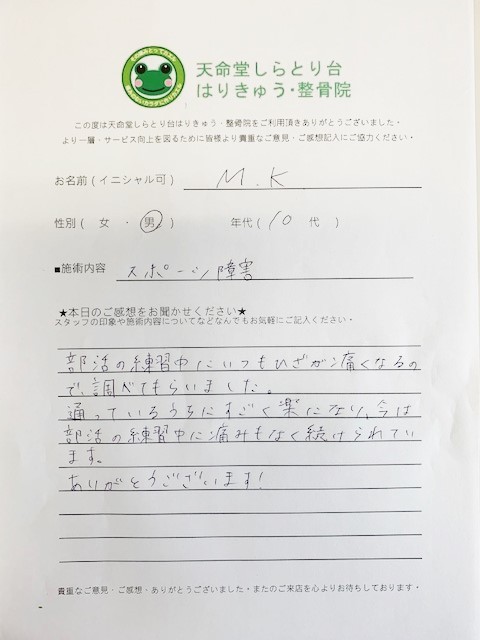 天命堂しらとり台
はりきゅう・整骨院
この度は天命堂しらとり台はりきゅう・整骨院をご利用頂きありがとうございました・
より一層・サービス向上を図るために皆様より貴重なご意見・ご感想記入にご協力ください・
お名前(イニシャル可) M.K
性別( 女 ・ 男 ) 年代( 10 代 )
■施術内容 スポーツ障害
★本日のご感想をお聞かせください★
スタッフの印象や施術内容についてなどなんでもお気軽にご記入ください・
部活の練習中にいつもひざが痛くなるの
で、調べてもらいました。
通っているうちにすごく楽になり、今は
部活の練習中に痛みもなく続けられてい
ます。
ありがとうございます!
貴重なご意見・ご感想・ありがとうございました・またのご来店を心よりお待ちしております・